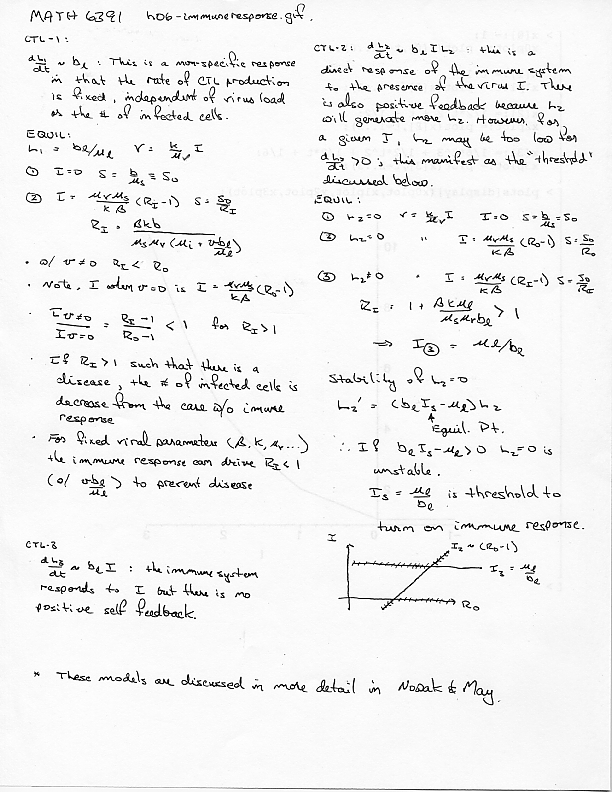 MATH 6391 h06-immuneresponse.gif.
CTL-1:
dL₁/dt ~ bℓ : This is a non-specific response
in that the rate of CTL production
is fixed, independent of virus load
or the # of infected cells.
EQUIL:
L₁ = bℓ/μℓ v = k/μv I
① I=0 S = b/μs ≡ S₀
② I = μvμs/kβ (R_I-1) S = S₀/R_I
R_I = βkb / μsμv(μi + νbℓ/μℓ)
• w/ ν≠0 R_I < R₀
• Note, I when ν=0 is I = μvμs/kβ (R₀-1)
I ν≠0 / I ν=0 = R_I-1 / R₀-1 < 1 for R_I>1
• If R_I>1 such that there is a
disease, the # of infected cells is
decrease from the case w/o imune
response
• For fixed viral parameters (β, k, μv...)
the immune response can drive R_I<1
(w/ νbℓ/μℓ) to prevent disease
CTL-2: dL₂/dt ~ bℓ I L₂ : this is a
direct response of the immune system
to the presence of the virus I. There
is also positive feedback because L₂
will generate more L₂. However, for
a given I, L₂ may be too low for
dL₂/dt >0; this manifest as the "threshold"
discussed below.
EQUIL:
① L₂=0 v = k/μv I I=0 S = b/μs = S₀
② L₂=0 " I = μvμs/kβ (R₀-1) S = S₀/R₀
③ L₂≠0 " I = μvμs/kβ (R_I-1) S = S₀/R_I
R_I = 1 + βkμℓ/μsμvbℓ > 1
⇒ I③ = μℓ/bℓ
Stability of L₂=0
L₂' = (bℓ Is - μℓ) L₂
↑
Equil. Pt.
∴ If bℓ Is - μℓ > 0 L₂=0 is
unstable.
Is = μℓ/bℓ is threshold to
turn on immune response.
CTL-3
dL₃/dt ~ bℓ I : the immune system
responds to I but there is no
positive self feedback.
I
I₂ ~ (R₀-1)
I₃ = μℓ/bℓ
R₀
* These models are discussed in more detail in Nowak & May.